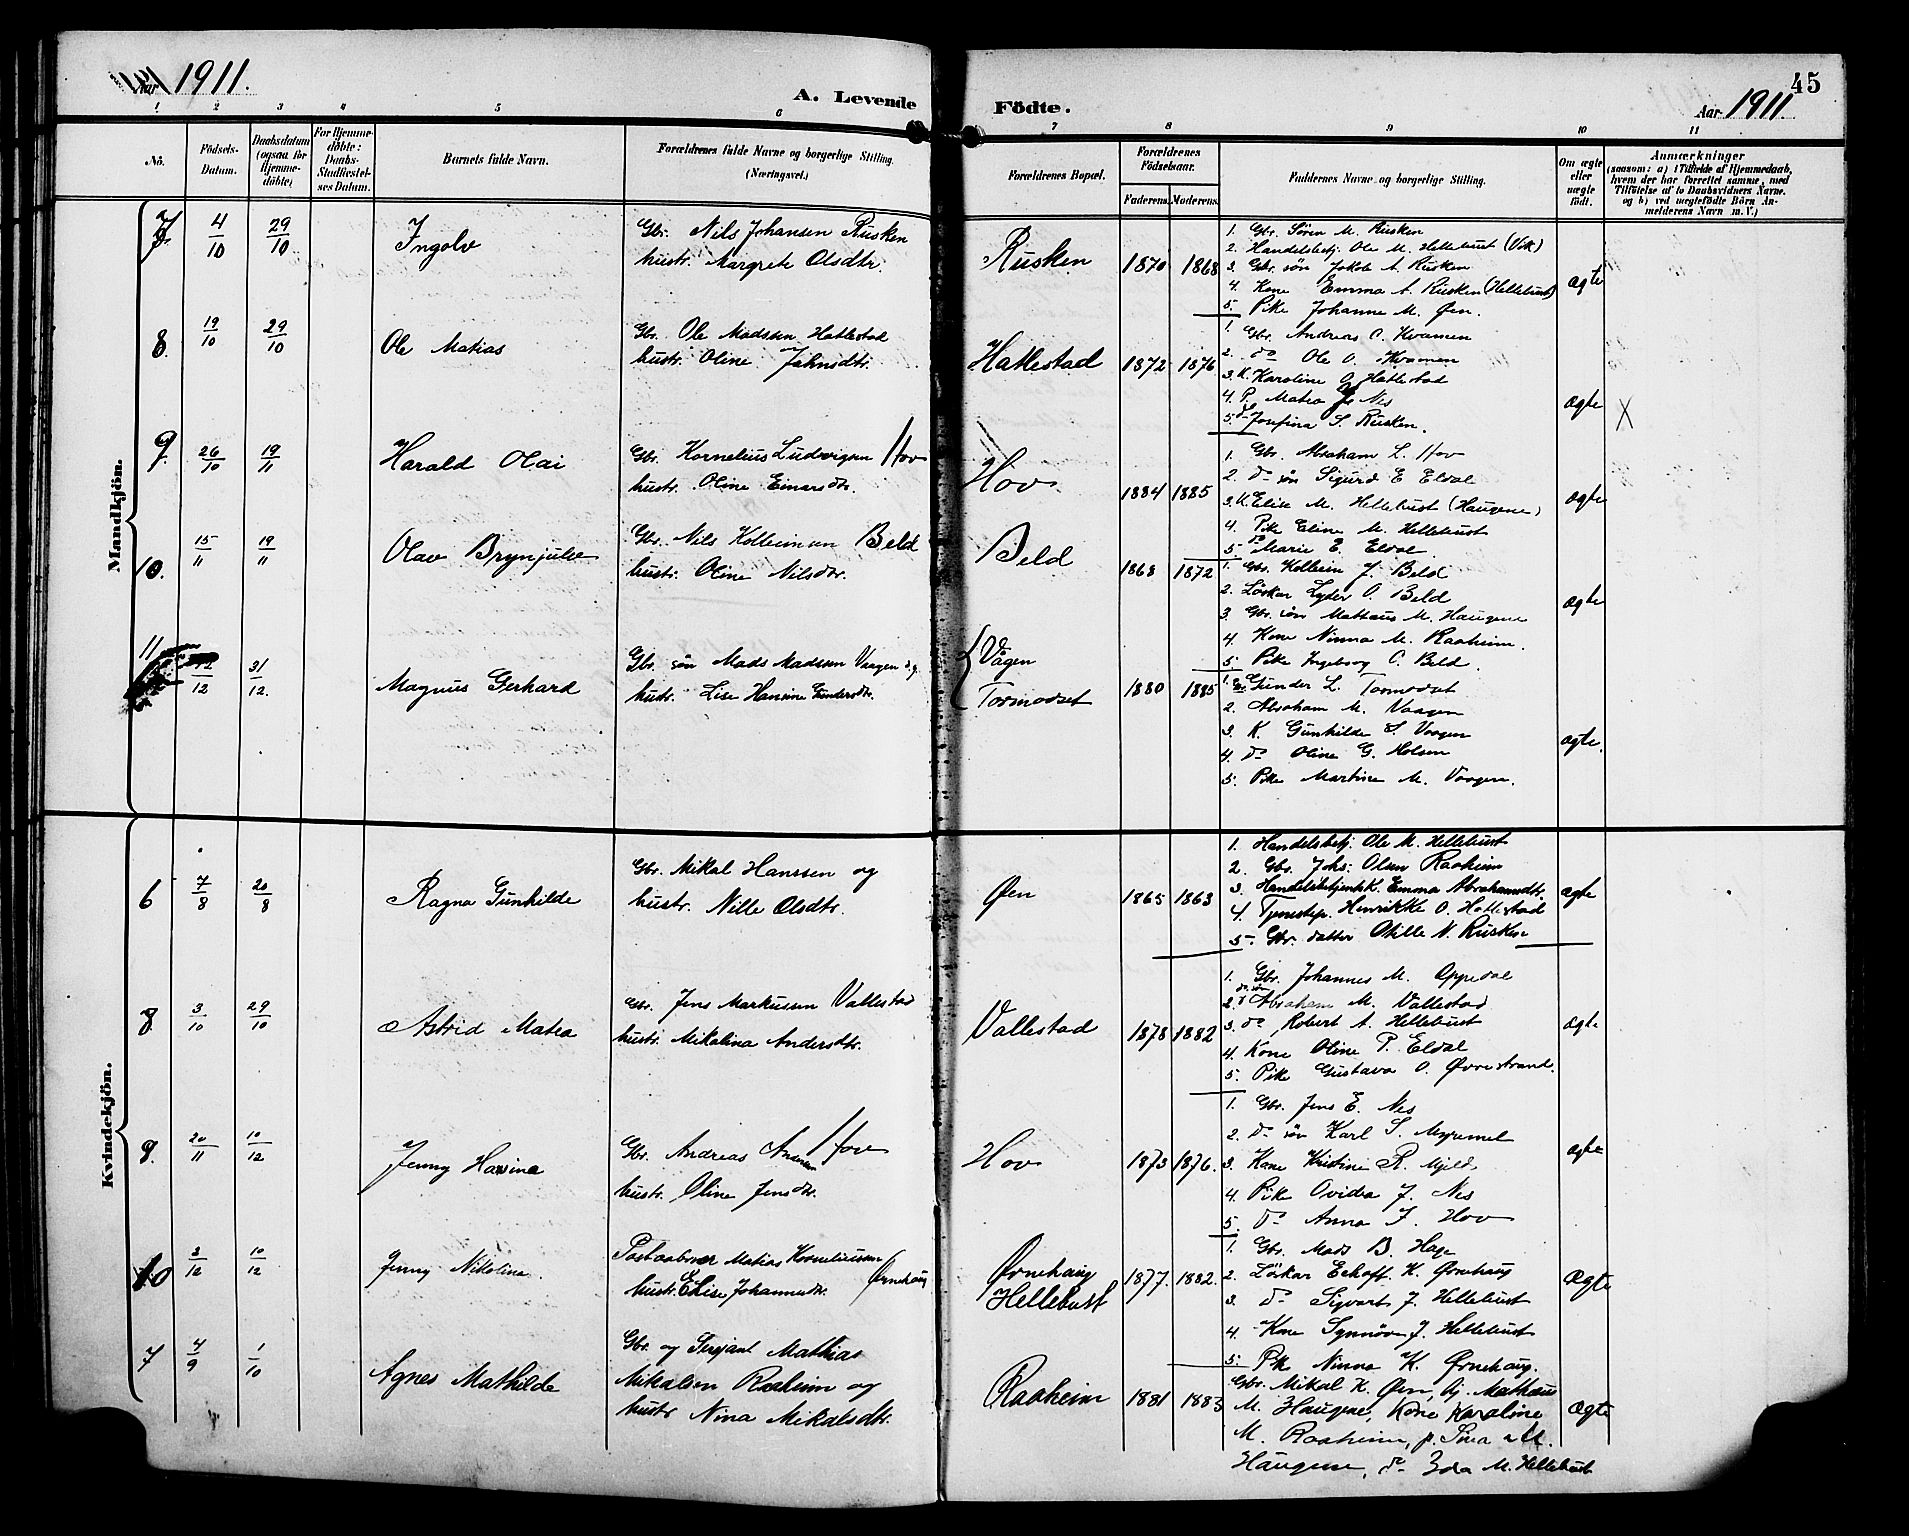 Aar 1911.
A. Levende
Födte.
45
Aar 1911
1 2 3 4 5 6 7 8 9 10 11
No.
Födsels-Datum.
Daabsdatum (ogsaa for Hjemme-döbte)
For Hjemme-döbte: Daabs-Stadfæstel-ses Datum.
Barnets fulde Navn.
Forældrenes fulde Navne og borgerlige Stilling.
(Næringsvei.)
Forældrenes Bopæl.
Forældrenes Födselsaar.
Faderens. Moderens.
Faddernes Navne og borgerlige Stilling.
Om ægte eller uægte födt.
Anmærkninger
(saasom: a) i Tilfælde af Hjemmedaab,
hvem der har forrettet samme, med
Tilföielse af to Daabsvidners Navne.
og b) ved uægtefödte Börn An-
melderens Navn m. V.)
Mandkjön.
7 4/10 29/10 Ingolv
Gbr. Nils Johansen Rusken
hustr. Margrete Olsdtr.
Rusken 1870 1868
1. Gbr. Søren M. Rusken
2. Handelsbetj. Ole M. Hellebust (Vik)
3. Gbr. søn Jakob A. Rusken
4. Kone Emma A. Rusken (Hellebust)
5. Pike Johanne M. Øen.
ægte
8. 19/10 29/10 Ole Matias
Gbr. Ole Madssen Hatlestad
hustr. Oline Jahnsdtr.
Hatlestad 1872 1876
1. Gbr. Andreas O. Kvamen
2. do Ole O. Kvamen
3. K. Karoline O. Hatlestad
4. P. Matea Nes
5. do Josefina S. Rusken.
ægte X
9. 26/10 19/11 Harald Olai
Gbr. Kornelius Ludvigsen Hov
hustr. Oline Einarsdtr.
Hov 1884 1885
1. Gbr. Abraham L. Hov
2. do søn Sigurd E Eldal
3. K. Elise M. Hellebust (Haugene)
4. Pike Eline M. Hellebust
5. do Marie E. Eldal.
ægte
10. 15/11 19/11 Olav Brynjulv
Gbr. Nils Kolbeinsen Beld
hustr. Oline Nilsdtr.
Beld 1868 1872
1. Gbr. Kolbein J. Beld
2. Löskar Lyder O. Beld
3. Gbr. søn Mathæus M. Haugene
4. Kone Ninna M. Raaheim.
5. Pike Ingeborg O. Beld.
ægte
11 /12 31/12. Magnus Gerhard
Gbr. søn Mads Madssen Vaagen og
hustr. Lise Hansine Gundersdtr.
Vågen
Tormodset 1880 1885
1. Gbr. Gunder L. Tormodset
2. Abraham M. Vaagen
3. K. Gunhilde S. Vaagen
4. do Oline G. Holsen
5. Pike Martine M. Vaagen.
ægte.
Kvindekjön.
6 7/8 20/8 Ragna Gunhilde
Gbr. Mikal Hanssen og
hustr. Nille Olsdtr.
Øen 1865 1863
1. Handelsbetj. Ole M. Hellebust
2. Gbr. Johs. Olsen Raaheim
3. Handelsbetjents K. Emma Abrahamdtr.
4. Tjenestep. Henrikke O. Hatlestad
5. Gbr. datter Otille N. Rusken
ægte
8 3/10 29/10 Astrid Matea
Gbr. Jens Markussen Vallestad
hustr. Mikalina Andersdtr.
Vallestad 1878 1882
1. Gbr. Johannes M. Oppedal
2. do søn Abraham M. Vallestad
3. do Robert A. Hellebust
4. Kone Oline P. Eldal
5. Pike Gustava O. Øvrestrand.
ægte
9. 20/11 10/12 Jenny Hansine
Gbr. Andreas Andersen Hov
hustr. Oline Jensdtr.
Hov 1873 1876.
1. Gbr. Jens E. Nes
2. do søn Karl S. Myrmel
3. Kone Kristine R. Mjeld
4. Pike Ovidia J. Nes
5. do Anna J. Hov
ægte
10 3/12 10/12 Jenny Nikolina.
Postaabner Matias Korneliussen
hustr. Elise Johannesdtr. Ørnehaug
Ørnehaug
Hellebust 1877. 1882.
1. Gbr. Mads B. Hage
2. Löskar Echoff K. Ørnehaug
3. do Sigvart J. Hellebust
4. Kone Synnöve J. Hellebust
5. Pike Ninna K. Ørnehaug.
Ægte
7 4/9 1/10 Agnes Mathilde
Gbr. og Sersjant Mathias
Mikalsen Raaheim og
hustr Nina Mikalsdtr.
Raaheim 1881 1883
Gbr. Mikal K. Øen, Gj. Mathæus
M. Haugene, Kone Karoline
M. Raaheim, p. Sina M.
Haugene, do Ida M. Hellebust
Ægte